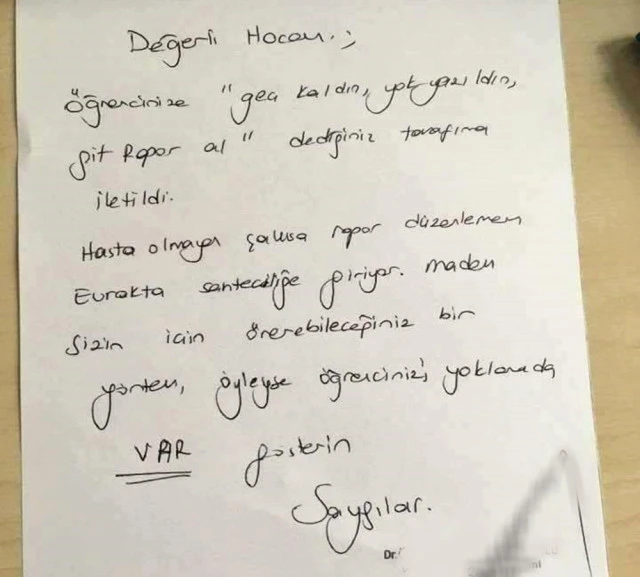 Değerli Hocam.;
Öğrencinize "geç kaldın, yok yazıldın,
git Rapor al" dediğiniz tarafıma
iletildi.
Hasta olmayan şahısa rapor düzenlemem
Evrakta sahteciliğe giriyor. madem
Sizin için önerebileceğiniz bir
yöntem, öyleyse öğrencinizi yoklamada
VAR gösterin
Saygılar.
Dr.